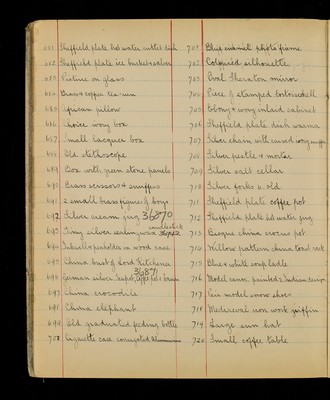 681 Sheffield plate hot water entrée dish
682 Sheffield plate ice bucket & salver
683 Picture on glass
684 Brass & copper tea-urn
685 African pillow
686 Choice ivory box
687 Small lacquer box
688 Old stethoscope
689 Box with green stone panels
690 Brass scissors & snuffers
691 2 small brass figures of boys
692 Silver cream jug 36870
693 Tiny silver
694 Inkwell & penholder in wood case
695 China bust of Lord Kitchener
36871
696 German silver teapot,
697 China crocodile
698 China elephant
699 Old graduated feeding bottle
700 Cigarette case corrugated
701 Blue enamel photo frame
702 Coloured silhouette
703 Oval Sheraton mirror
704 Piece of stamped tortoiseshell
705 Ebony & ivory inlaid cabinet
706 Sheffield plate dish warmer
707 Silver chain with carved ivory
708 Silver pestle & mortar
709 Silver salt cellar
710 Silver forks v. old
711 Sheffield plate coffee pot
712 Sheffield plate hot water jug
713 Bisque china crocus pot
714 Willow pattern china toast rack
715 Blue & white soup ladle
716 Model canoe, painted, Indian design
717 Pair model snow shoes
718 Mediaeval iron work griffin
719 Large sun hat
720 Small coffee table